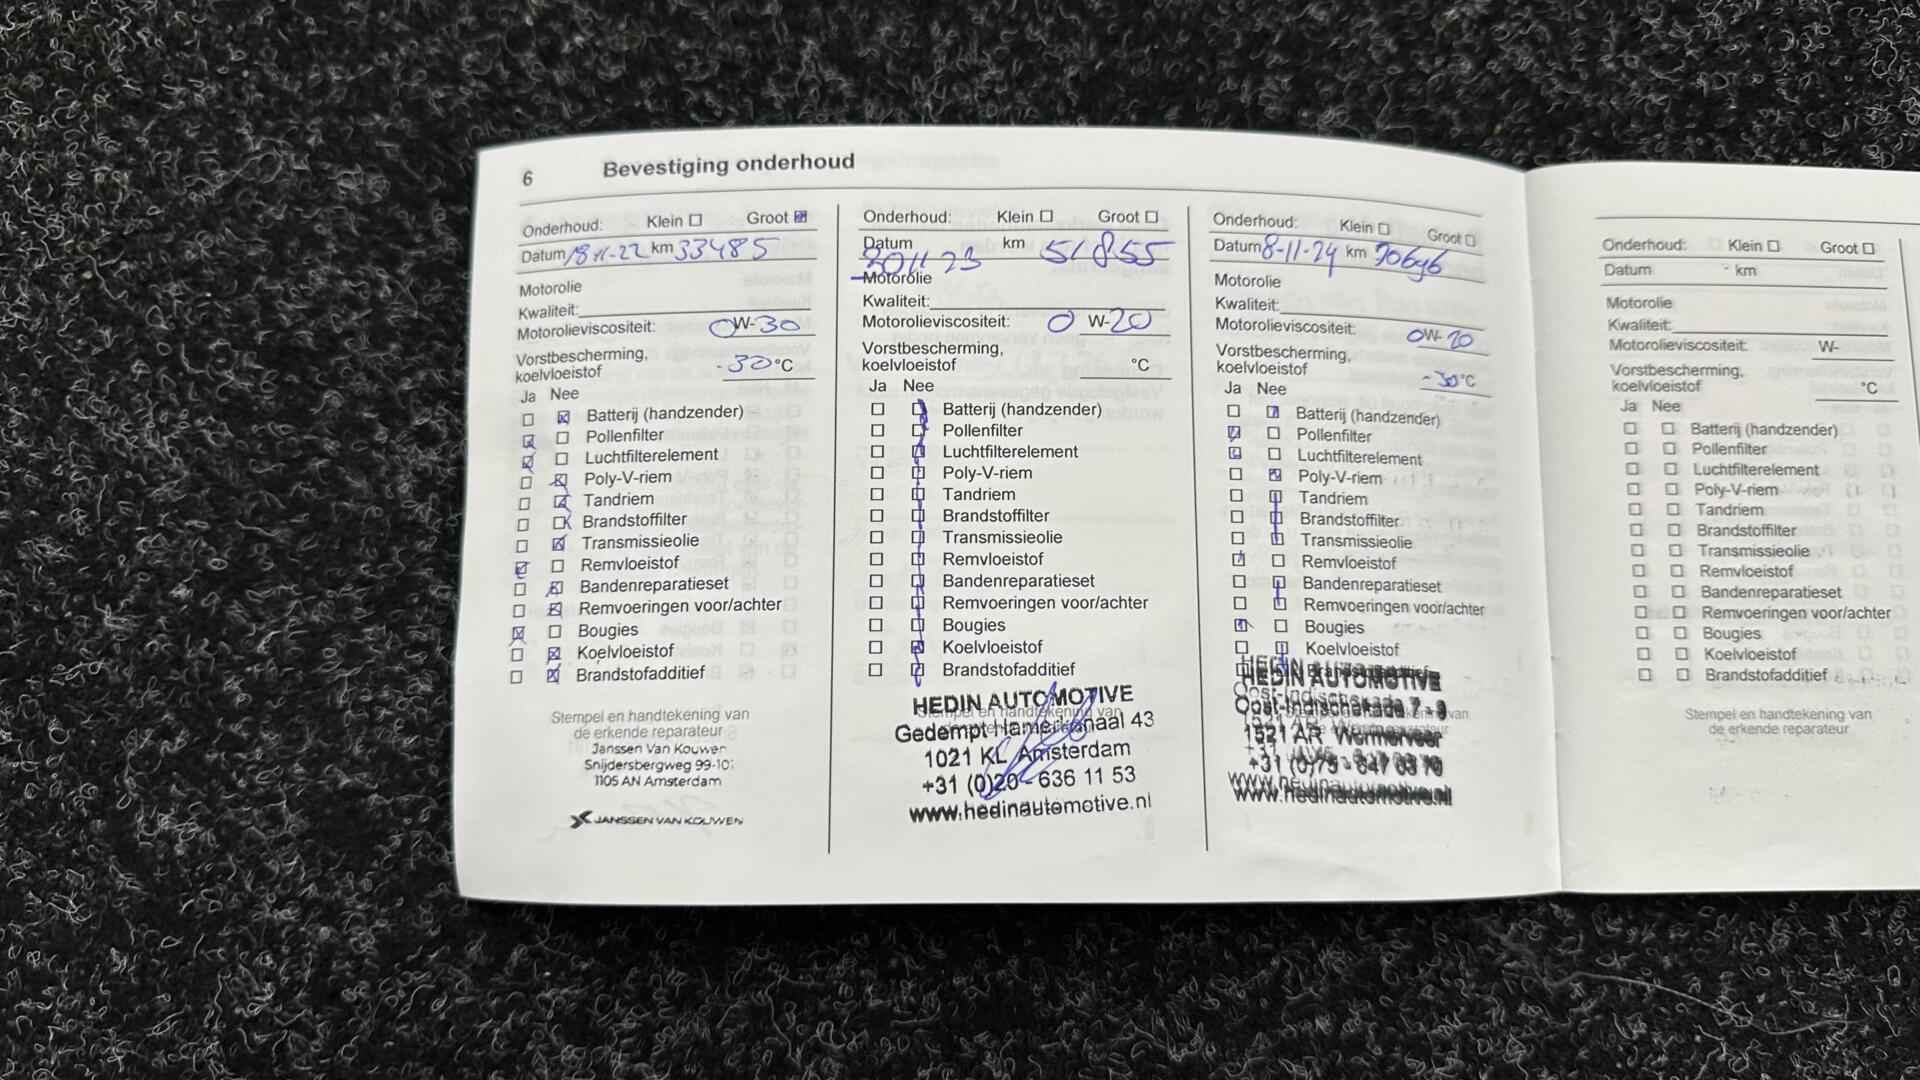 6 Bevestiging onderhoud
Onderhoud: Klein Groot
Datum 18-11-22 km 33485
Motorolie
Kwaliteit:
Motorolieviscositeit: 0W-30
Vorstbescherming,
koelvloeistof -30°C
Ja Nee
Batterij (handzender)
Pollenfilter
Luchtfilterelement
Poly-V-riem
Tandriem
Brandstoffilter
Transmissieolie
Remvloeistof
Bandenreparatieset
Remvoeringen voor/achter
Bougies
Koelvloeistof
Brandstofadditief
Stempel en handtekening van
de erkende reparateur
Janssen Van Kouwen
Snijdersbergweg 99-101
1105 AN Amsterdam
JANSSEN VAN KOUWEN
Onderhoud: Klein Groot
Datum km 51855
30 11 23
Motorolie
Kwaliteit:
Motorolieviscositeit: 0 W-20
Vorstbescherming,
koelvloeistof °C
Ja Nee
Batterij (handzender)
Pollenfilter
Luchtfilterelement
Poly-V-riem
Tandriem
Brandstoffilter
Transmissieolie
Remvloeistof
Bandenreparatieset
Remvoeringen voor/achter
Bougies
Koelvloeistof
Brandstofadditief
Stempel en handtekening van
HEDIN AUTOMOTIVE
Gedempt Hamerkanaal 43
1021 KL Amsterdam
+31 (0)20 - 636 11 53
www.hedinautomotive.nl
Onderhoud: Klein Groot
Datum 8-11-24 km 70696
Motorolie
Kwaliteit:
Motorolieviscositeit: 0W-20
Vorstbescherming,
koelvloeistof -30°C
Ja Nee
Batterij (handzender)
Pollenfilter
Luchtfilterelement
Poly-V-riem
Tandriem
Brandstoffilter
Transmissieolie
Remvloeistof
Bandenreparatieset
Remvoeringen voor/achter
Bougies
Koelvloeistof
HEDIN AUTOMOTIVE
Oost-Indischekade 7 - 9
1521 AR Wormerveer
+31 (0)75 - 647
www.hedinautomotive.nl
Onderhoud: Klein Groot
Datum km
Motorolie
Kwaliteit:
Motorolieviscositeit: W-
Vorstbescherming,
koelvloeistof °C
Ja Nee
Batterij (handzender)
Pollenfilter
Luchtfilterelement
Poly-V-riem
Tandriem
Brandstoffilter
Transmissieolie
Remvloeistof
Bandenreparatieset
Remvoeringen voor/achter
Bougies
Koelvloeistof
Brandstofadditief
Stempel en handtekening van
de erkende reparateur